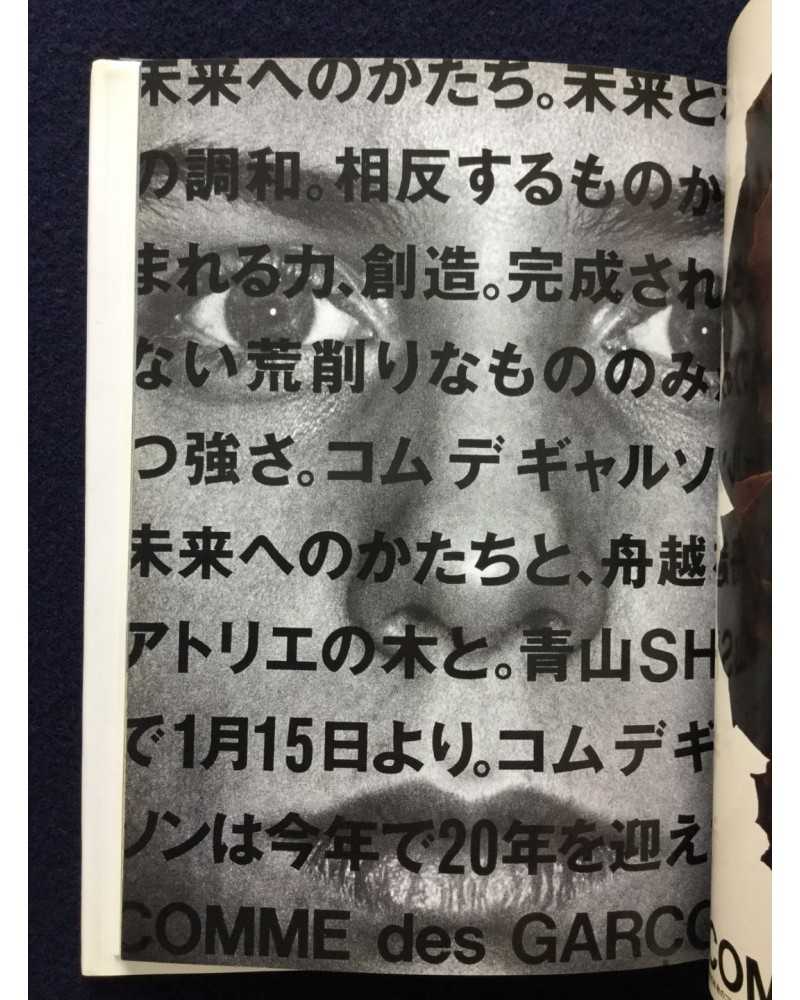 未来へのかたち。未来と
の調和。相反するものか
まれる力、創造。完成され
ない荒削りなもののみ
つ強さ。コム デ ギャルソ
未来へのかたちと、舟越
アトリエの木と。青山SH
で1月15日より。コム デ ギ
ソンは今年で20年を迎え
COMME des GARÇO
COM